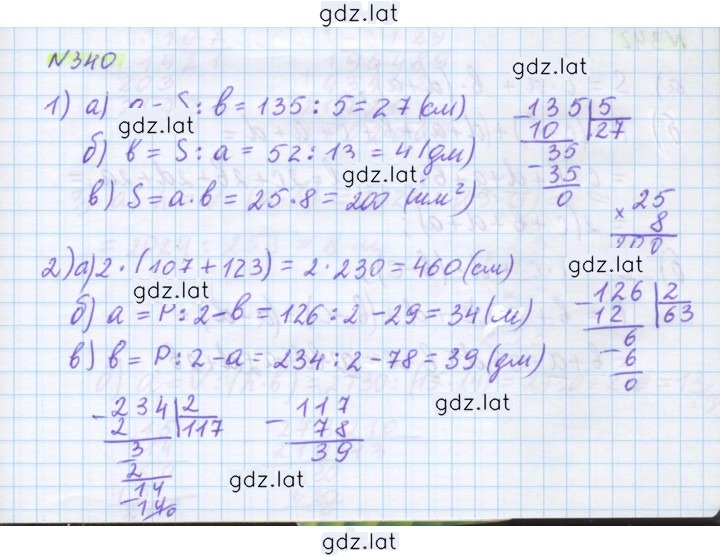 gdz.lat
N340
gdz.lat
1) а) a = S : b = 135 : 5 = 27 (см)
gdz.lat
б) b = S : a = 52 : 13 = 4 (дм)
gdz.lat
в) S = a · b = 25 · 8 = 200 (мм²)
- 135 | 5
10 27
35
- 35
0
25
× 8
200
2) а) 2 · (107 + 123) = 2 · 230 = 460 (см)
gdz.lat
gdz.lat
б) a = P : 2 - b = 126 : 2 - 29 = 34 (м)
в) b = P : 2 - a = 234 : 2 - 78 = 39 (дм)
- 126 | 2
12 63
6
- 6
0
- 234 | 2
2 117
3
2
14
- 14
0
- 117
78
39
gdz.lat
gdz.lat
gdz.lat